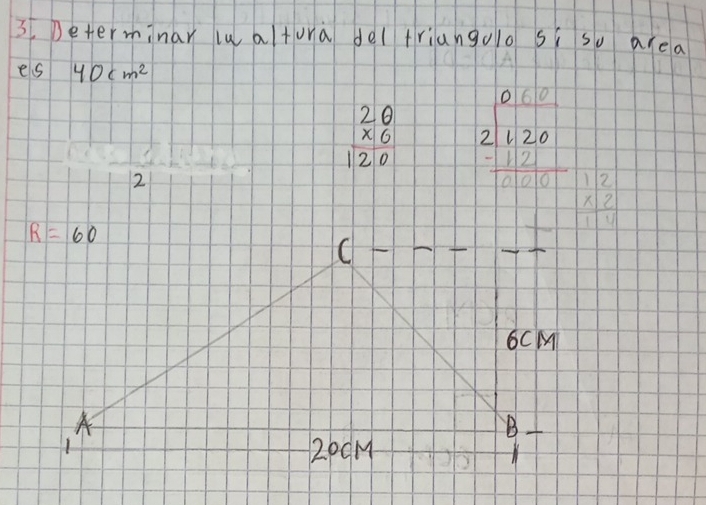 3. Determinar la altura del triangulo si su area
es 40cm²
20
x6
120
060
2 120
-12
000
12
x2
14
2
R = 60
C
6CM
A
B
20CM